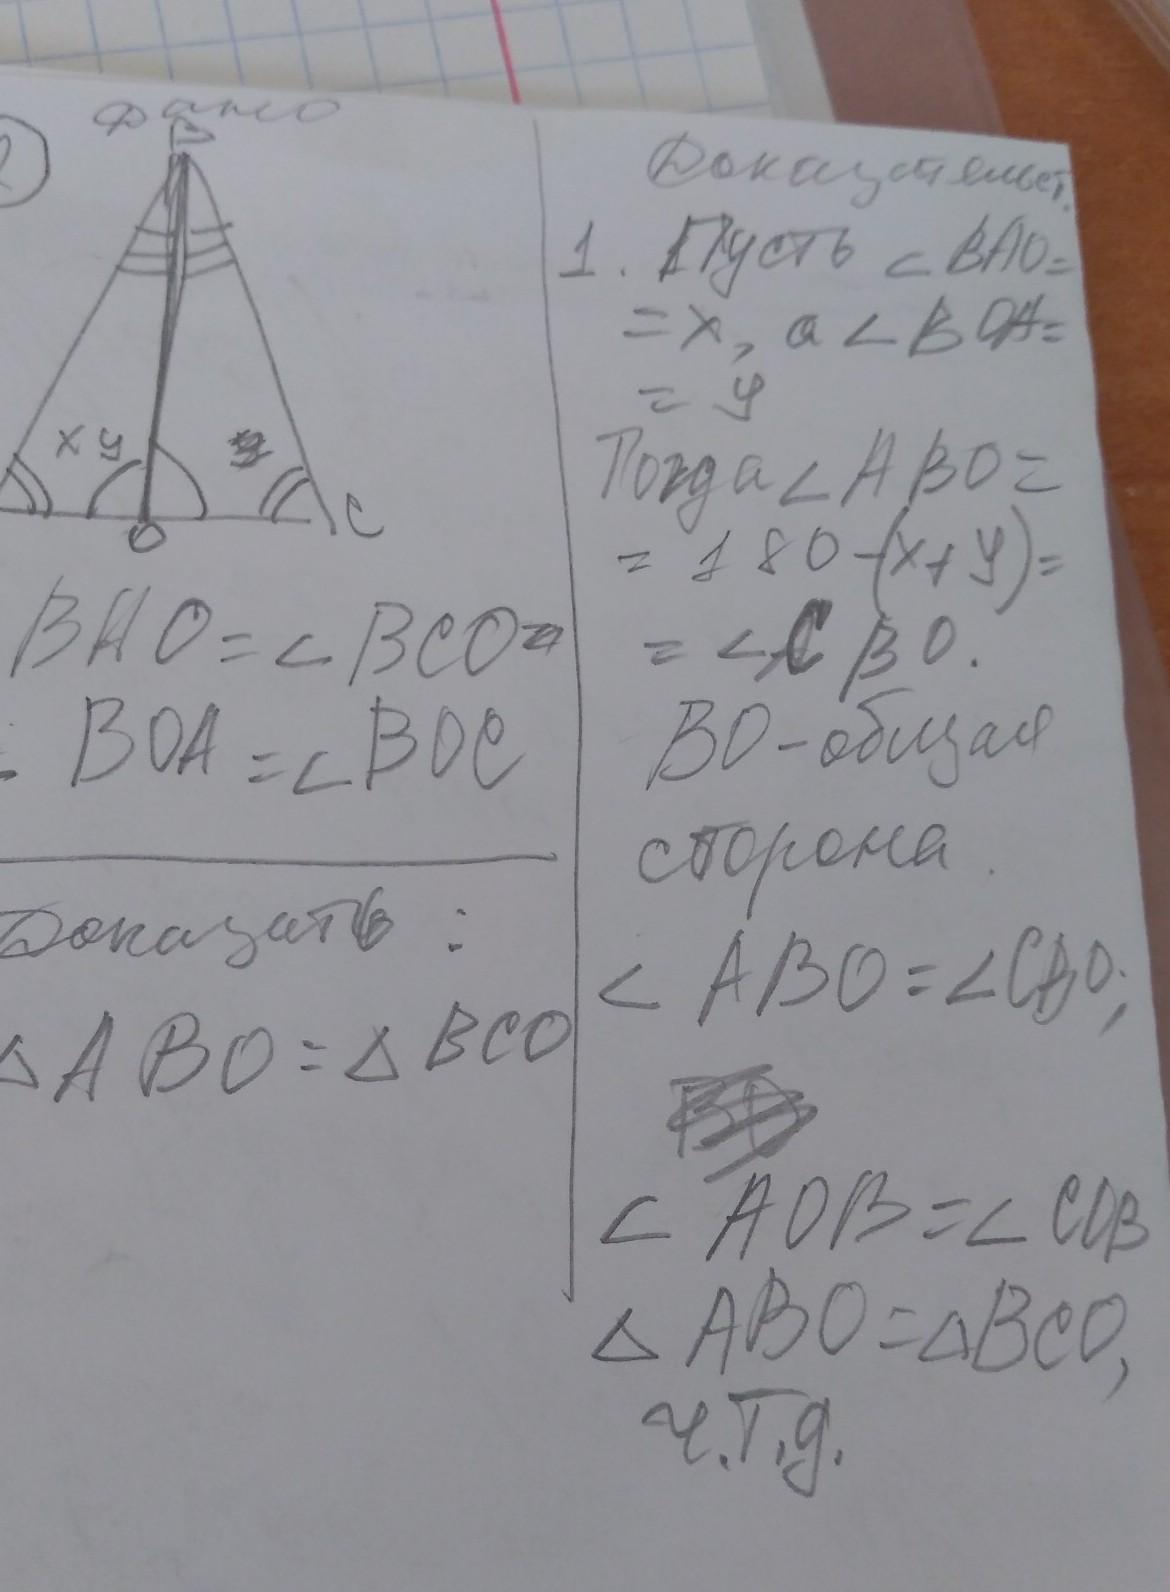 2
Дано
B
x y
O
C
BAO = ∠BCO
BOA = ∠BOC
Доказать:
△ABO = △BCO
Доказательст.
1. Пусть ∠BAO =
= x, а ∠BOA =
= y
Тогда ∠ABO =
= 180 - (x + y) =
= ∠CBO.
BO - общая
сторона.
∠ABO = ∠CBO;
∠AOB = ∠COB
△ABO = △BCO,
ч.т.д.